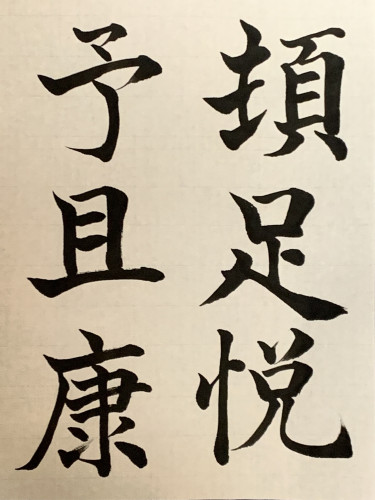 頓足悦
予且康